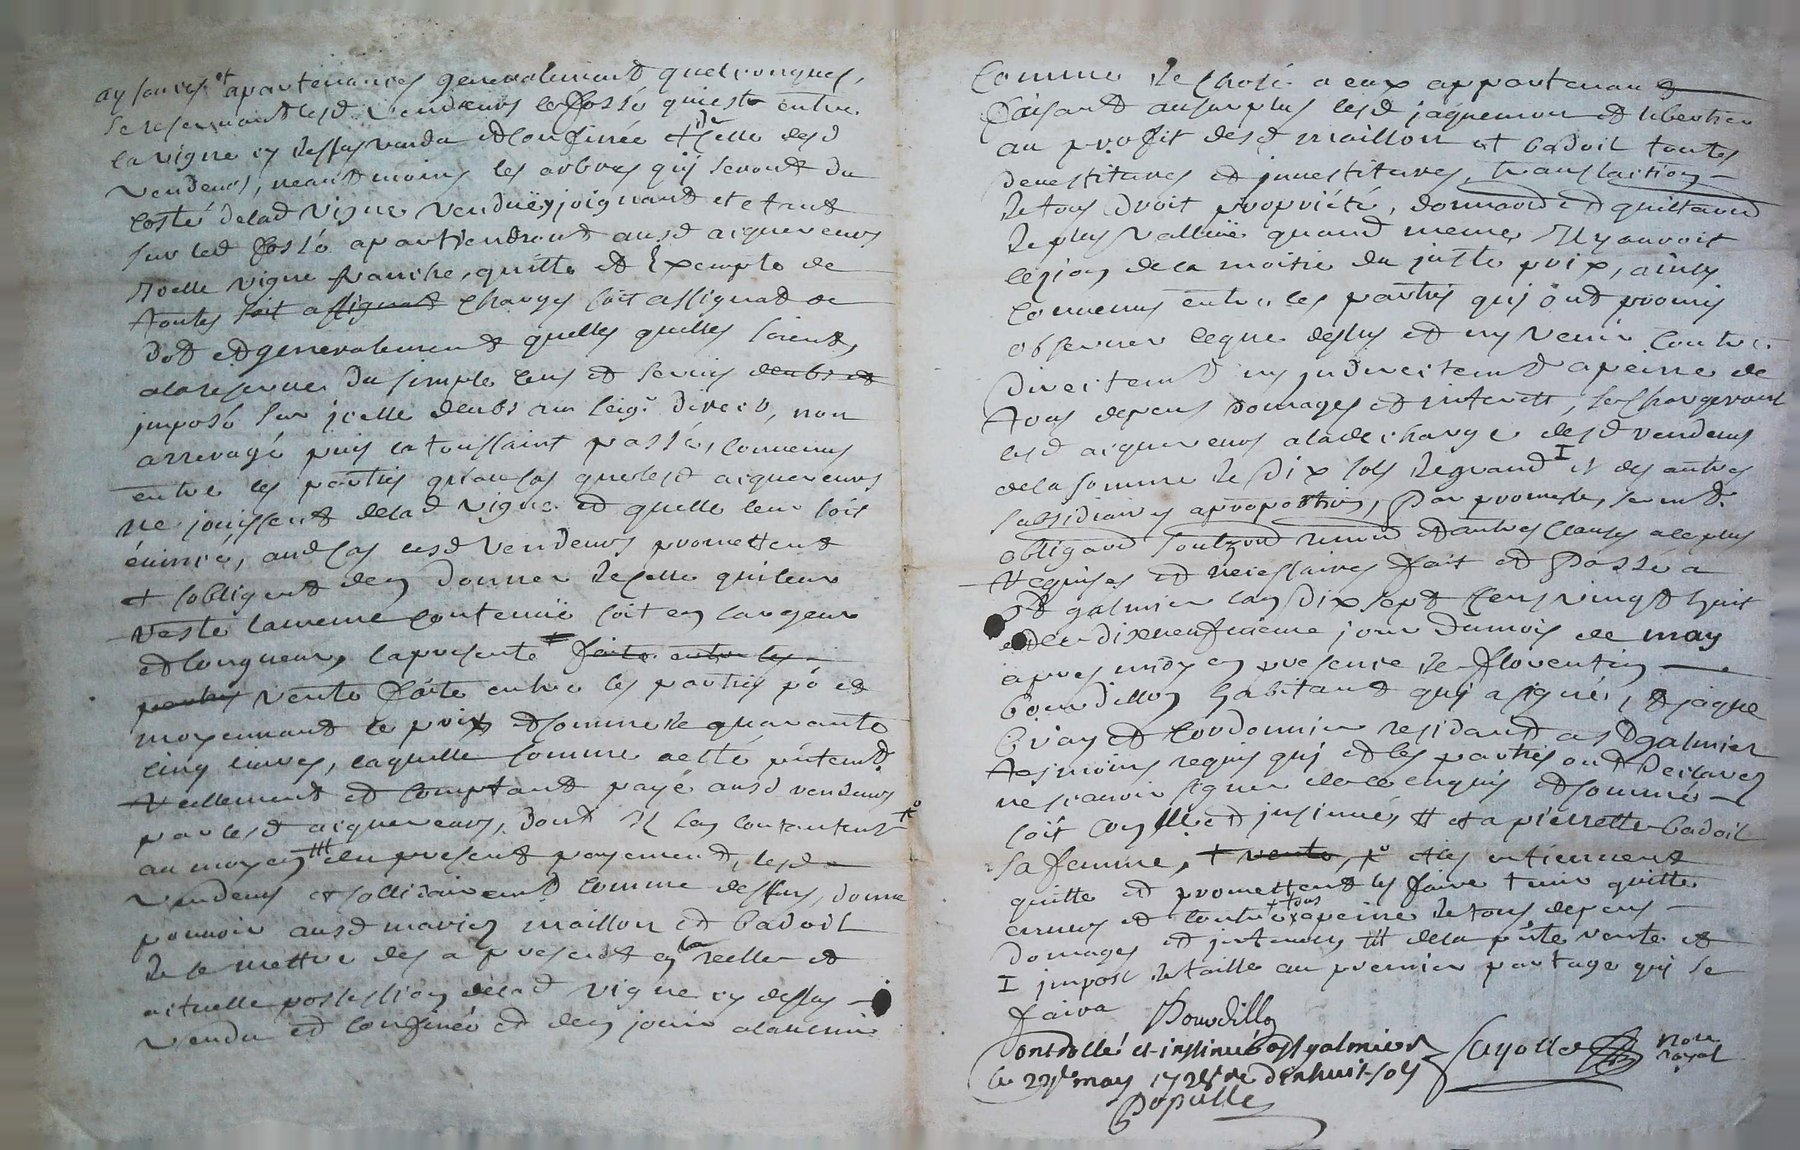 aysances et apartenances generalement quelconques,
se reservant lesd vendeurs le fossé qui est entre
la vigne cy dessus vendue et confinée et celle desd
vendeurs, neantmoins les arbres qui seront du
costé de lad vigne venduë joignant et etant
sur led fossé apartiendront ausd aiquereurs
Icelle vigne franche, quitte et exempte de
toutes soit assignat charges soit assignat de
dot et generalement quelles quelles soient,
a la reserve du simple cens et servis deubs et
imposé sur icelle deubs au seigr direct, non
arreragé puis la toussaint passée, convenus
entre les parties qu'au cas que lesd aiquereurs
ne jouissent de lad vigne et quelle leur soit
évincé, aud cas lesd vendeurs promettent
et sobligent den donner de celle qui leur
reste la meme contenuë soit en largeur
et longueur, la presente faite entre les
parties vente faite entre les parties po et
moyennant le prix et somme de quarante
cinq livres, laquelle somme a esté pntemt
reellement et comptant payé ausd vendeurs
par lesd aiquereurs, dont ils sen contentent
au moyen du present payement, lesd
vendeurs et sollidairement comme dessus, donne
pouvoir ausd mariez maillon et badoil
de se mettre des a present en la reelle et
actuelle possession de lad vigne cy dessus
vendu et confinée et den jouir a l'avenir
Comme de chose a eux appartenant
faisant au surplus lesd jaquemon et
au profit desd maillon et badoil toutes
devestitures et investitures, translaction
de tous droit propriété, donnant et quittant
le plus vallue quand meme il y auroit
lezion de la moitié du juste prix, ainsy
convenus entre les parties qui ont promis
observer ceque dessus et ny venir contre
directemt ny indirectemt a peine de
tous depens domages et interetz, se chargeront
lesd aiquereurs a la decharge desd vendeurs
de la somme de dix sols de grand I et des autres
subsidiaires aproportion, Par promesse, sermt
obligaõn soubzmõn renõn et autres clauses a ce plus
requises et necessaires fait et Passé a
St galmier lan dix sept cens vingt huit
et le dixneufvieme jour du mois de may
apres midy en presence de florentin
bourdillon habitant qui a signé, et jaque
cordonnier residant a St galmier
tesmoins requis qui et les parties ont declarez
ne scavoir signer de ce enquis et sommé
soit con[tro]llé et insinué, # et a pierrette badoil
sa femme, + vente, po et les en tiennent
quitte et promettent les faire tenir quitte
envers et contre tous a peine de tous depens
domages et interests, ++ de la pnte vente et
I impost de taille au premier partage qui se
faira Bourdillon
Controllé et insinué a St galmier
le 22e may 1728 re dixhuit sols
Populle
notre
royal